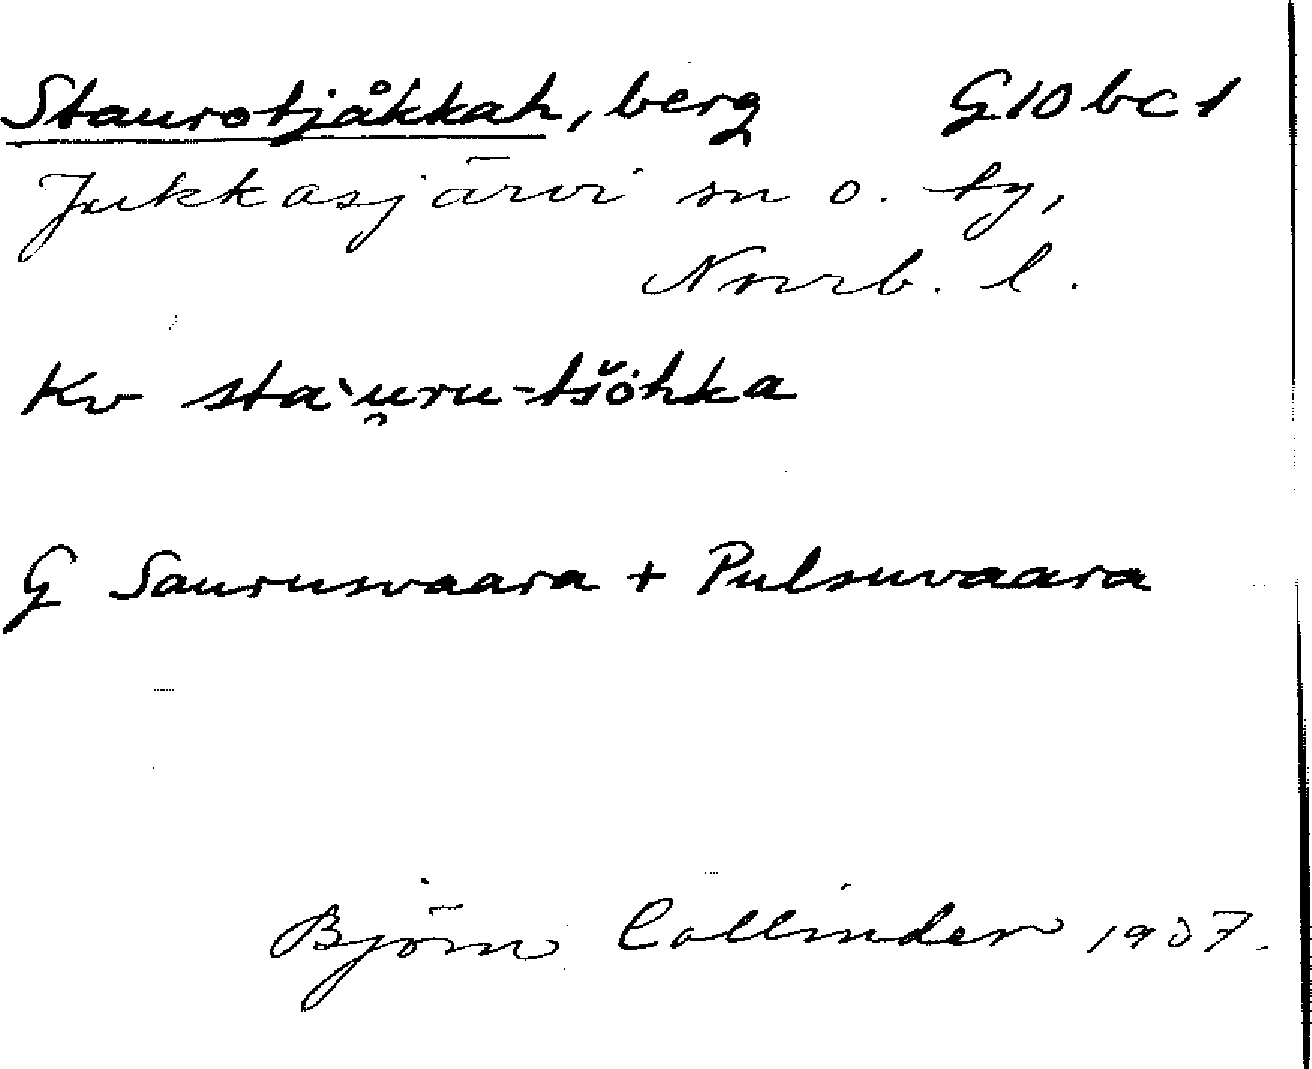 Staurotjåkkah, berg G10bc1
Jukkasjärvi sn o. tg,
Norrb. l.
Kv sta`u̯ru-tšȯhka
G Saurusvaara + Pulsuvaara
Björn Collinder 1937.